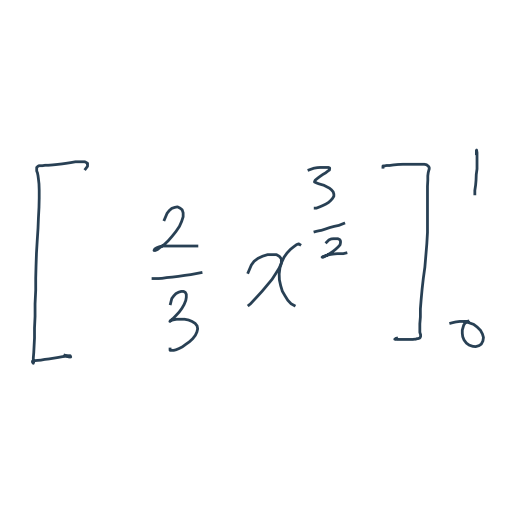 [ 2/3 x^{3/2} ]_0^1